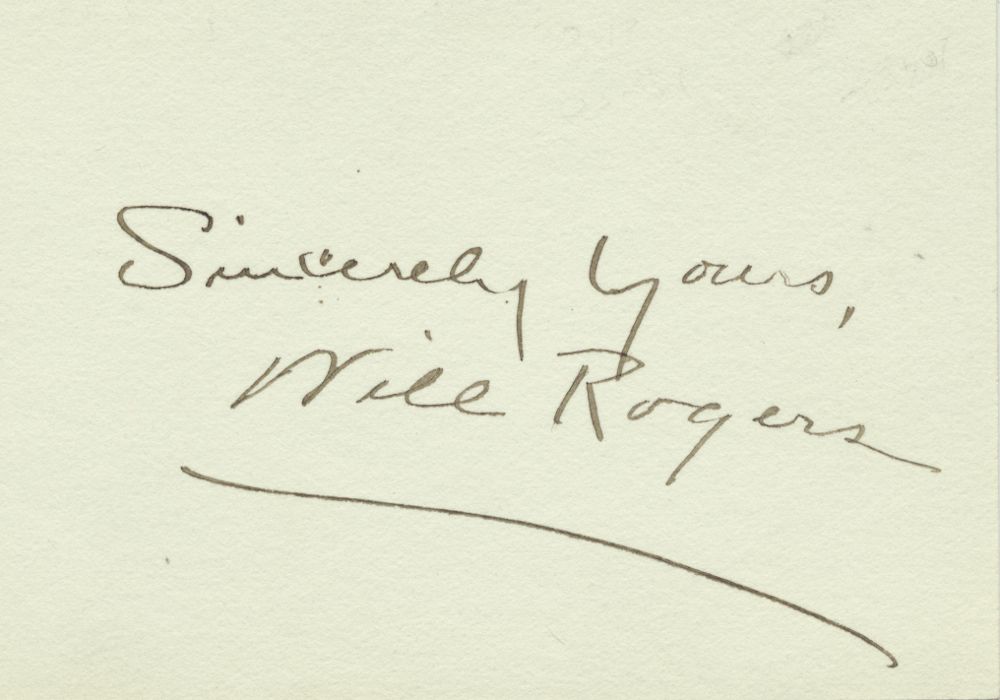 Sincerely Yours,
Will Rogers